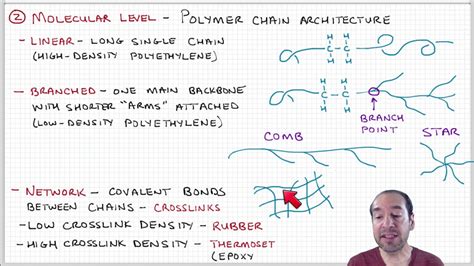 ② MOLECULAR LEVEL - POLYMER CHAIN ARCHITECTURE
- LINEAR - LONG SINGLE CHAIN
(HIGH-DENSITY POLYETHYLENE)
H H
C C
H H
- BRANCHED - ONE MAIN BACKBONE
WITH SHORTER "ARMS" ATTACHED
(LOW-DENSITY POLYETHYLENE)
H H
C C
H H
BRANCH
POINT
COMB
STAR
- NETWORK - COVALENT BONDS
BETWEEN CHAINS - CROSSLINKS
- LOW CROSSLINK DENSITY - RUBBER
- HIGH CROSSLINK DENSITY - THERMOSET
(EPOXY